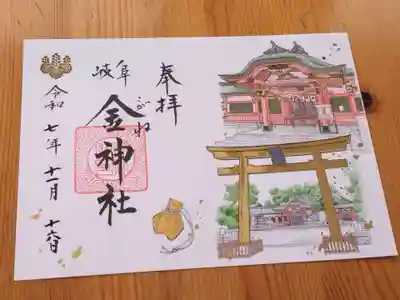 奉拝
岐阜
金神社
こがね
令和七年十一月十六日